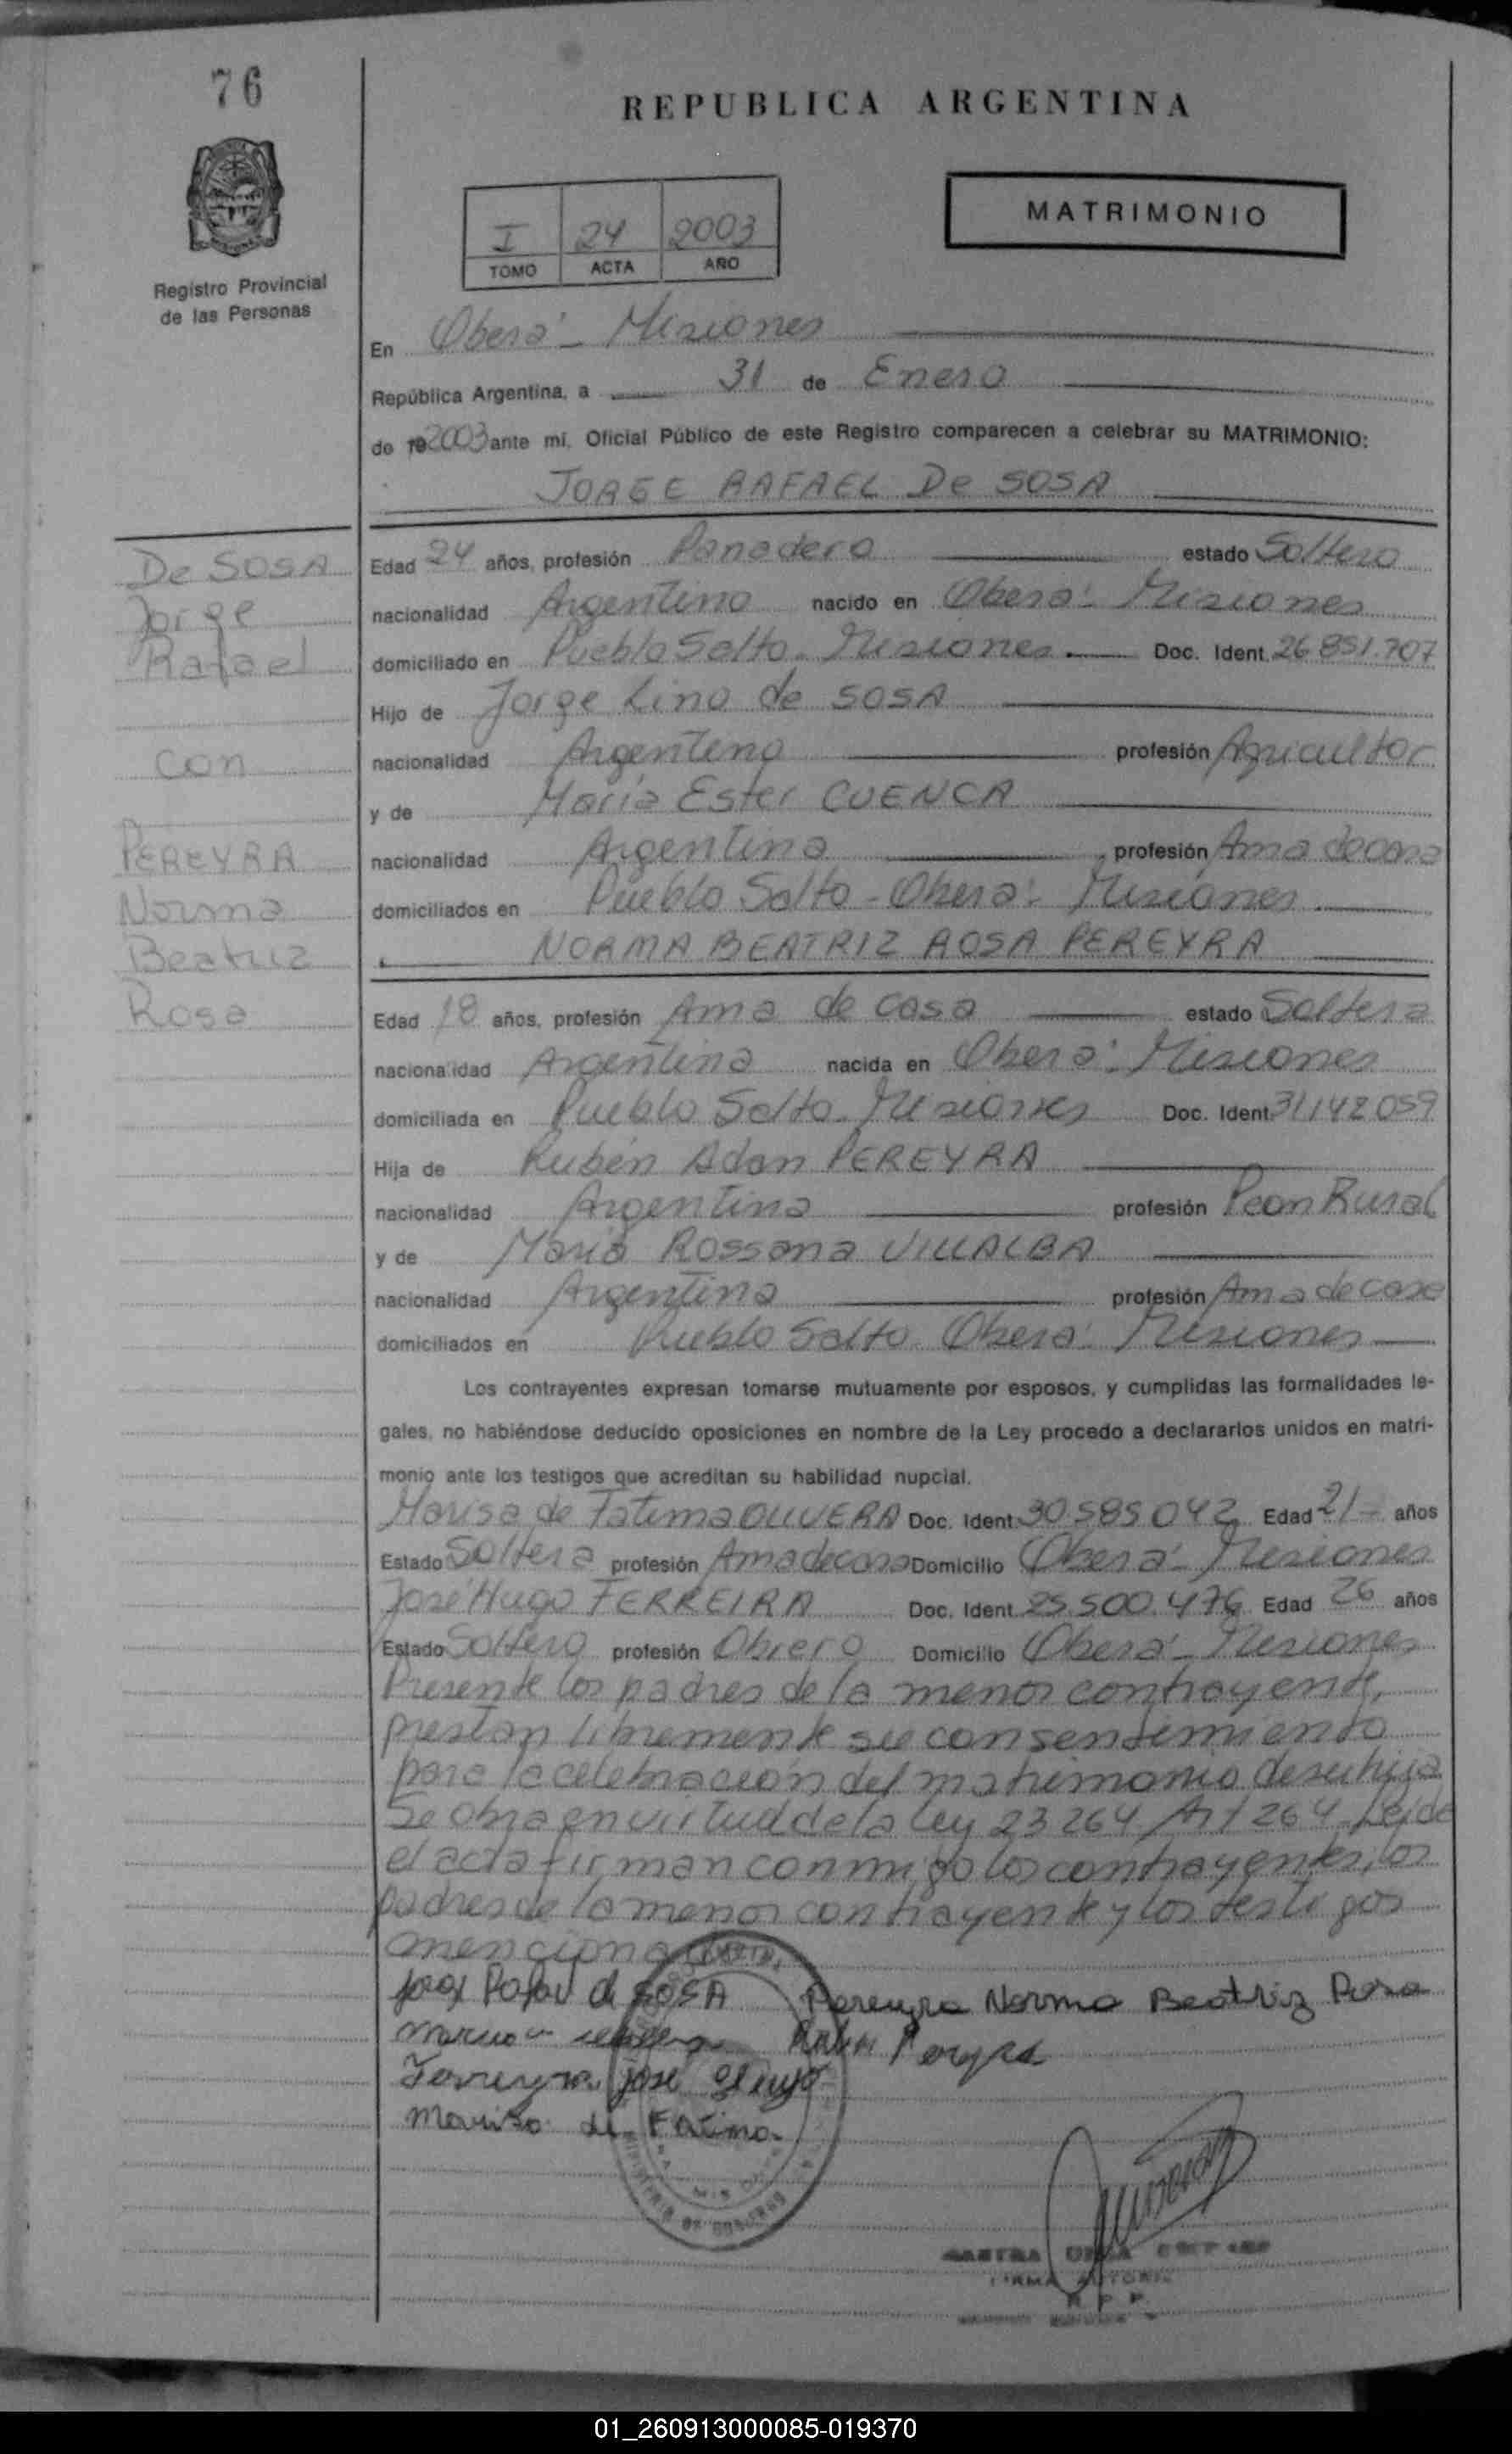 76
REPUBLICA ARGENTINA
Registro Provincial
de las Personas
I 24 2003
TOMO ACTA AÑO
MATRIMONIO
En Oberá - Misiones
República Argentina, a 31 de Enero
de 19 2003 ante mi, Oficial Público de este Registro comparecen a celebrar su MATRIMONIO:
JORGE RAFAEL De SOSA
De SOSA
Jorge
Rafael
con
PEREYRA
Norma
Beatriz
Rosa
Edad 24 años, profesión Panadero estado Soltero
nacionalidad Argentino nacido en Oberá - Misiones
domiciliado en Pueblo Salto - Misiones Doc. Ident. 26.851.707
Hijo de Jorge Lino de SOSA
nacionalidad Argentino profesión Agricultor
y de María Ester CUENCA
nacionalidad Argentina profesión Ama de casa
domiciliados en Pueblo Salto - Oberá - Misiones
NORMA BEATRIZ ROSA PEREYRA
Edad 18 años, profesión Ama de casa estado Soltera
nacionalidad Argentina nacida en Oberá - Misiones
domiciliada en Pueblo Salto - Misiones Doc. Ident. 31.142.059
Hija de Rubén Adan PEREYRA
nacionalidad Argentino profesión Peon Rural
y de María Rossana VILLALBA
nacionalidad Argentina profesión Ama de casa
domiciliados en Pueblo Salto Oberá - Misiones
Los contrayentes expresan tomarse mutuamente por esposos, y cumplidas las formalidades le-
gales, no habiéndose deducido oposiciones en nombre de la Ley procedo a declararlos unidos en matri-
monio ante los testigos que acreditan su habilidad nupcial.
Marisa de Fatima OLIVERA Doc. Ident. 30.585.042 Edad 21 - años
Estado Soltera profesión Ama de casa Domicilio Oberá - Misiones
José Hugo FERREIRA Doc. Ident. 25.500.476 Edad 26 años
Estado Soltero profesión Obrero Domicilio Oberá - Misiones
Presente los padres de la menor contrayente,
prestan libremente su consentimiento
para la celebración del matrimonio de su hija
Se obra en virtud de la ley 23264 Art 264 - Leída
el acta firman conmigo los contrayentes, los
padres de la menor contrayente y los testigos
mencionados.
de SOSA Pereyra Norma Beatriz Rosa
Rubén Pereyra
Ferreyra José Hugo
Marisa de Fatima
01_260913000085-019370